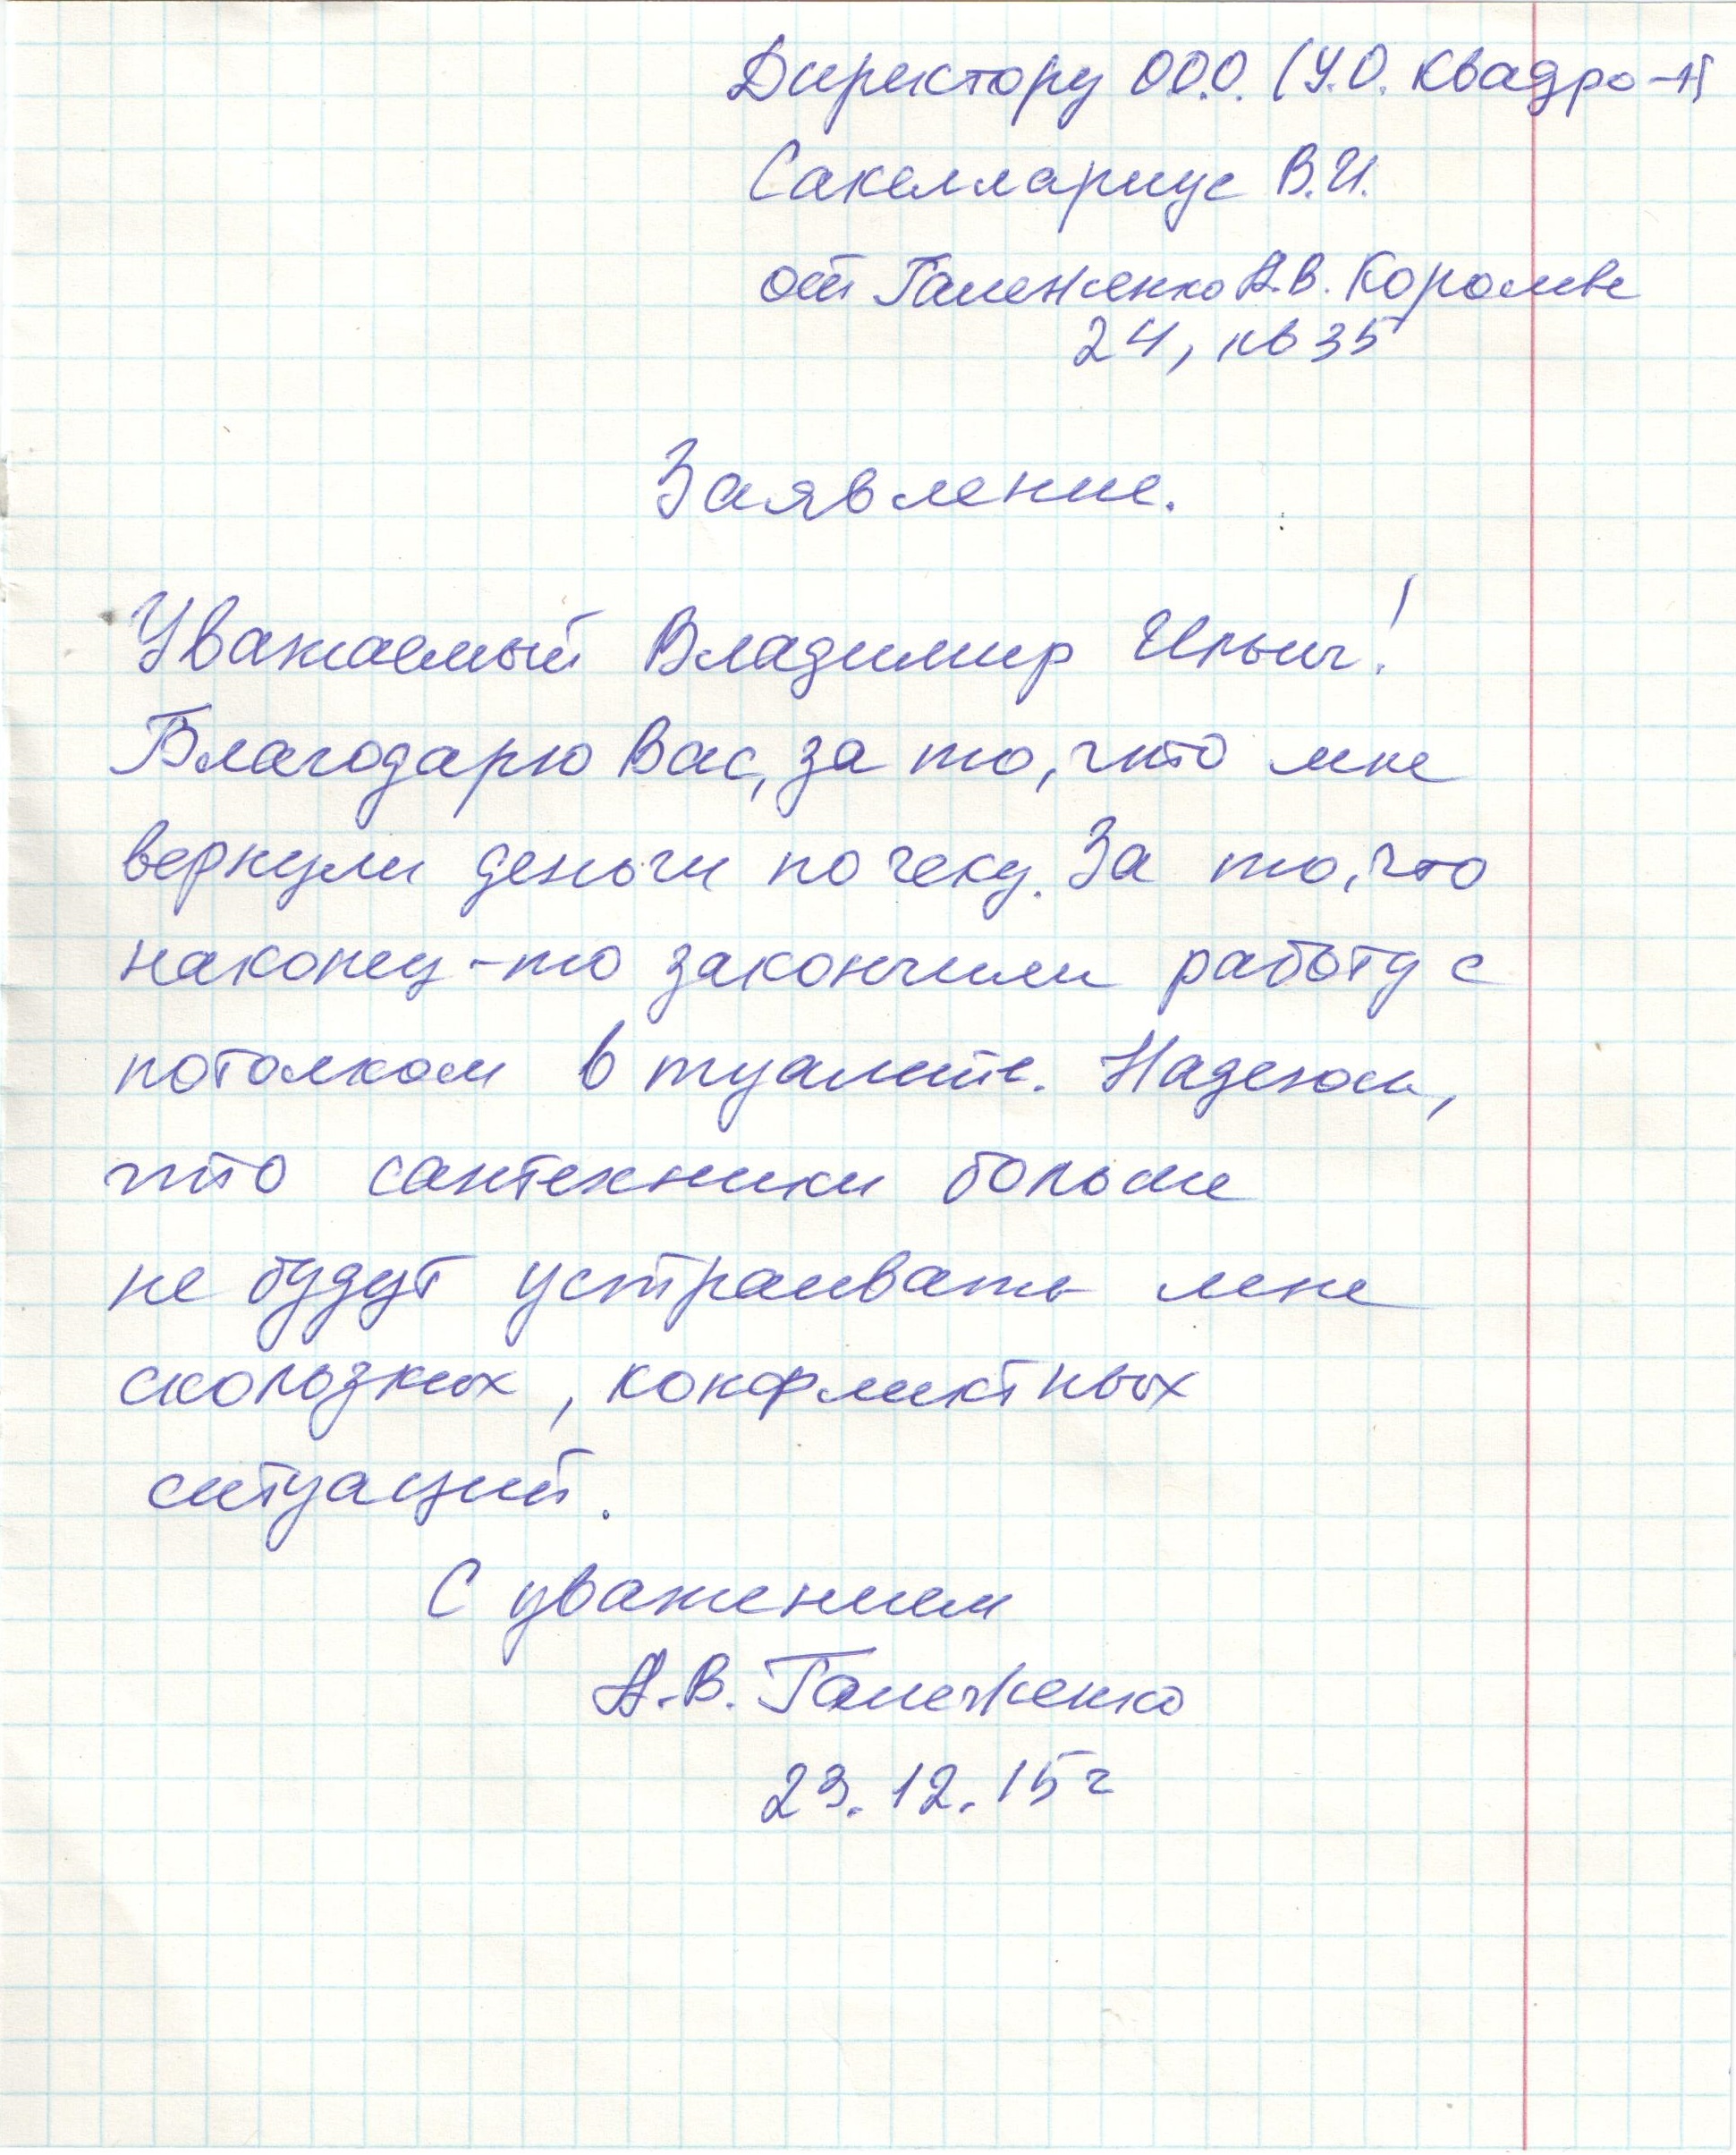 Директору О.О.О. (У.О. Квадро-1)
Сакеллариус В.И.
от Галеженко А.В. Королева
24, кв 35
Заявление.
Уважаемый Владимир Ильич!
Благодарю Вас, за то, что мне
вернули деньги по чеку. За то, что
наконец-то закончили работу с
потолком в туалете. Надеюсь,
что сантехники больше
не будут устраивать мне
скользких, конфликтных
ситуаций.
С уважением
А.В. Галеженко
23.12.15г